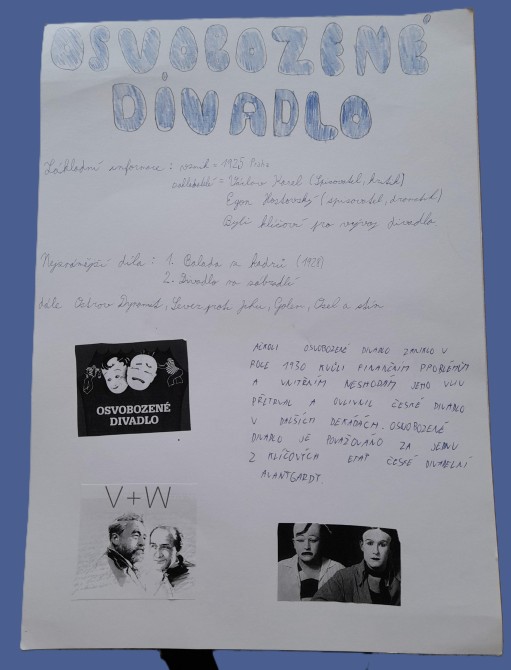 OSVOBOZENÉ
DIVADLO
Základní informace: vznik - 1925 Praha
zakladatelé = Václav Karel (spisovatel, kritik)
Egon Hostovský (spisovatel, dramatik)
Byli klíčoví pro vývoj divadla
Nejznámější díla: 1. Balada z hadrů (1928)
2. Divadlo na zábradlí
dále Ostrov Dynamit, Sever proti Jihu, Golem, Osel a stín
OSVOBOZENÉ
DIVADLO
AČKOLI OSVOBOZENÉ DIVADLO ZANIKLO V
ROCE 1930 KVŮLI FINANČNÍM PROBLÉMŮM
A VNITŘNÍM NESHODÁM JEHO VLIV
PŘETRVAL A OVLIVNIL ČESKÉ DIVADLO
V DALŠÍCH DEKÁDÁCH. OSVOBOZENÉ
DIVADLO JE POVAŽOVÁNO ZA JEDNU
Z KLÍČOVÝCH ETAP ČESKÉ DIVADELNÍ
AVANTGARDY.
V+W